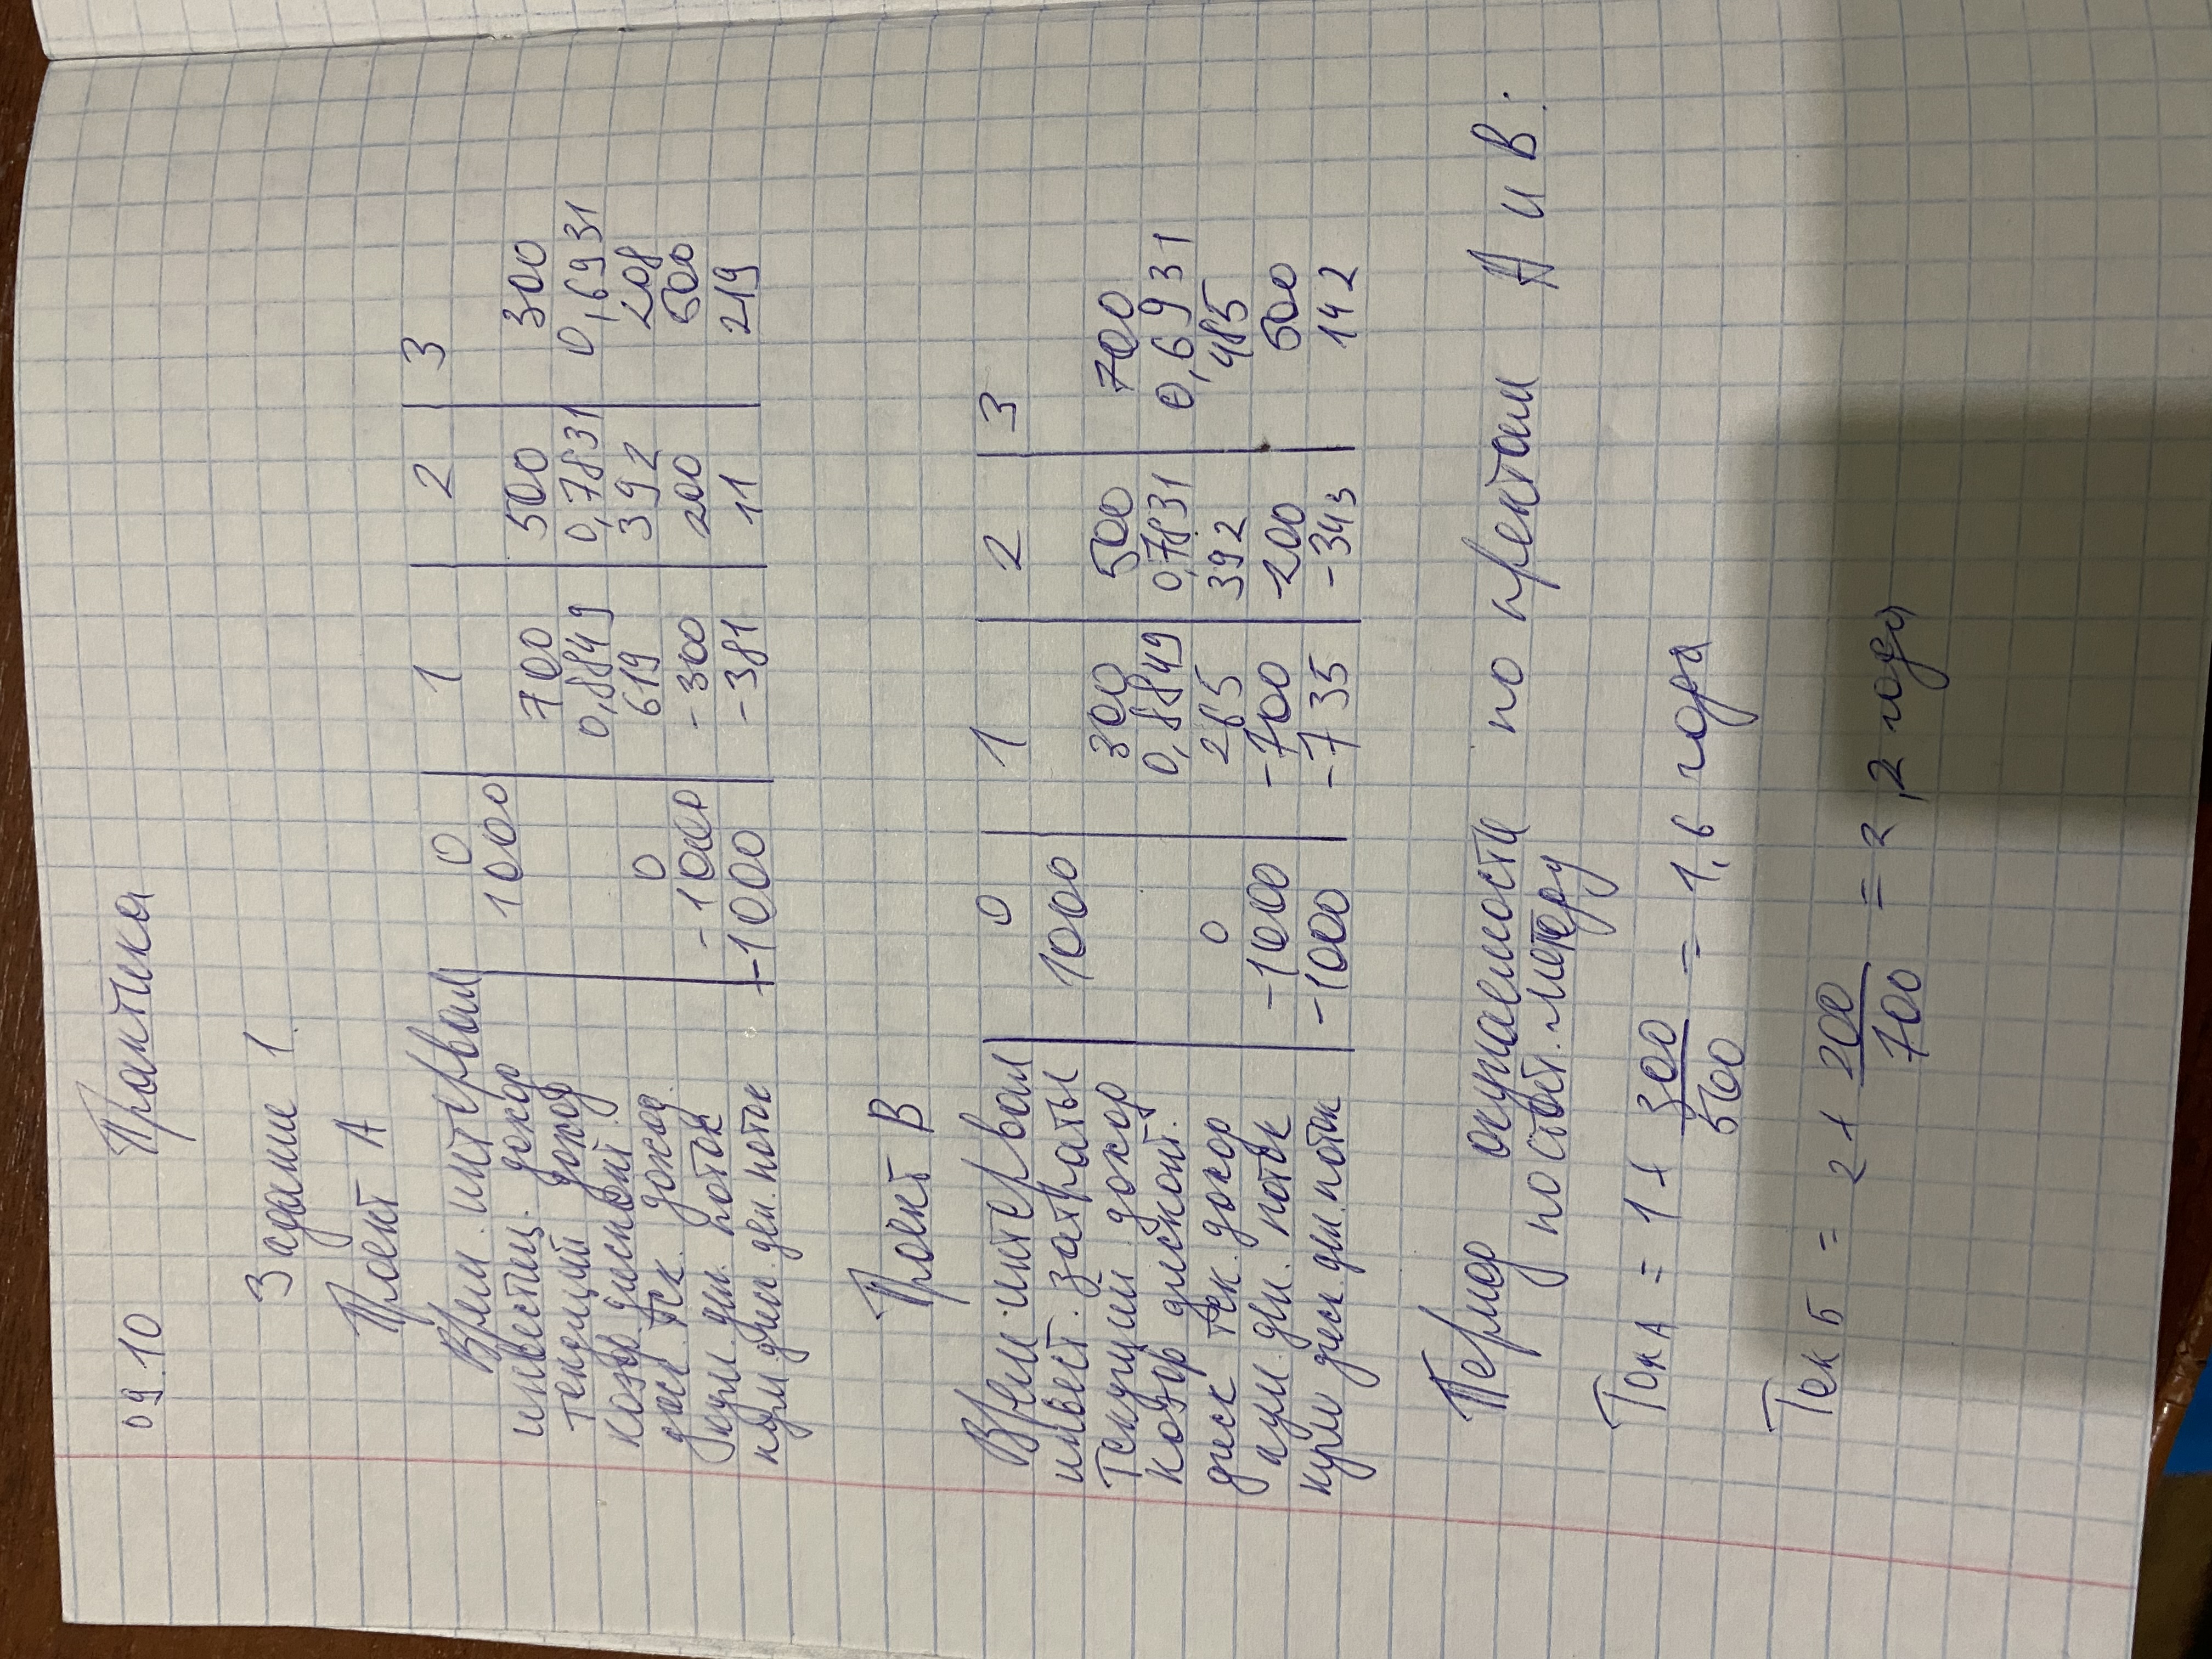 09.10 Практика
Задание 1.
Проект А
Врем. интервал 0 1 2 3
инвестиц. доход 1000
текущий доход 700 500 300
коэф. дисконт. 0,8849 0,7831 0,6931
диск. тек. доход. 0 619 392 208
кум. ден. поток -1000 -300 200 500
кум. диск. ден. поток -1000 -381 11 219
Проект В
Врем. интервал 0 1 2 3
инвест. затраты 1000
текущий доход 300 500 700
коэф дисконт. 0,8849 0,7831 0,6931
диск тек. доход 0 265 392 485
кум. ден. поток -1000 -700 -200 500
кум диск. ден. поток -1000 -735 -343 142
Период окупаемости по пректам А и В:
по стат. методу
Ток А = 1 + 300/500 = 1,6 года
Ток Б = 2 + 200/700 = 2,2 года